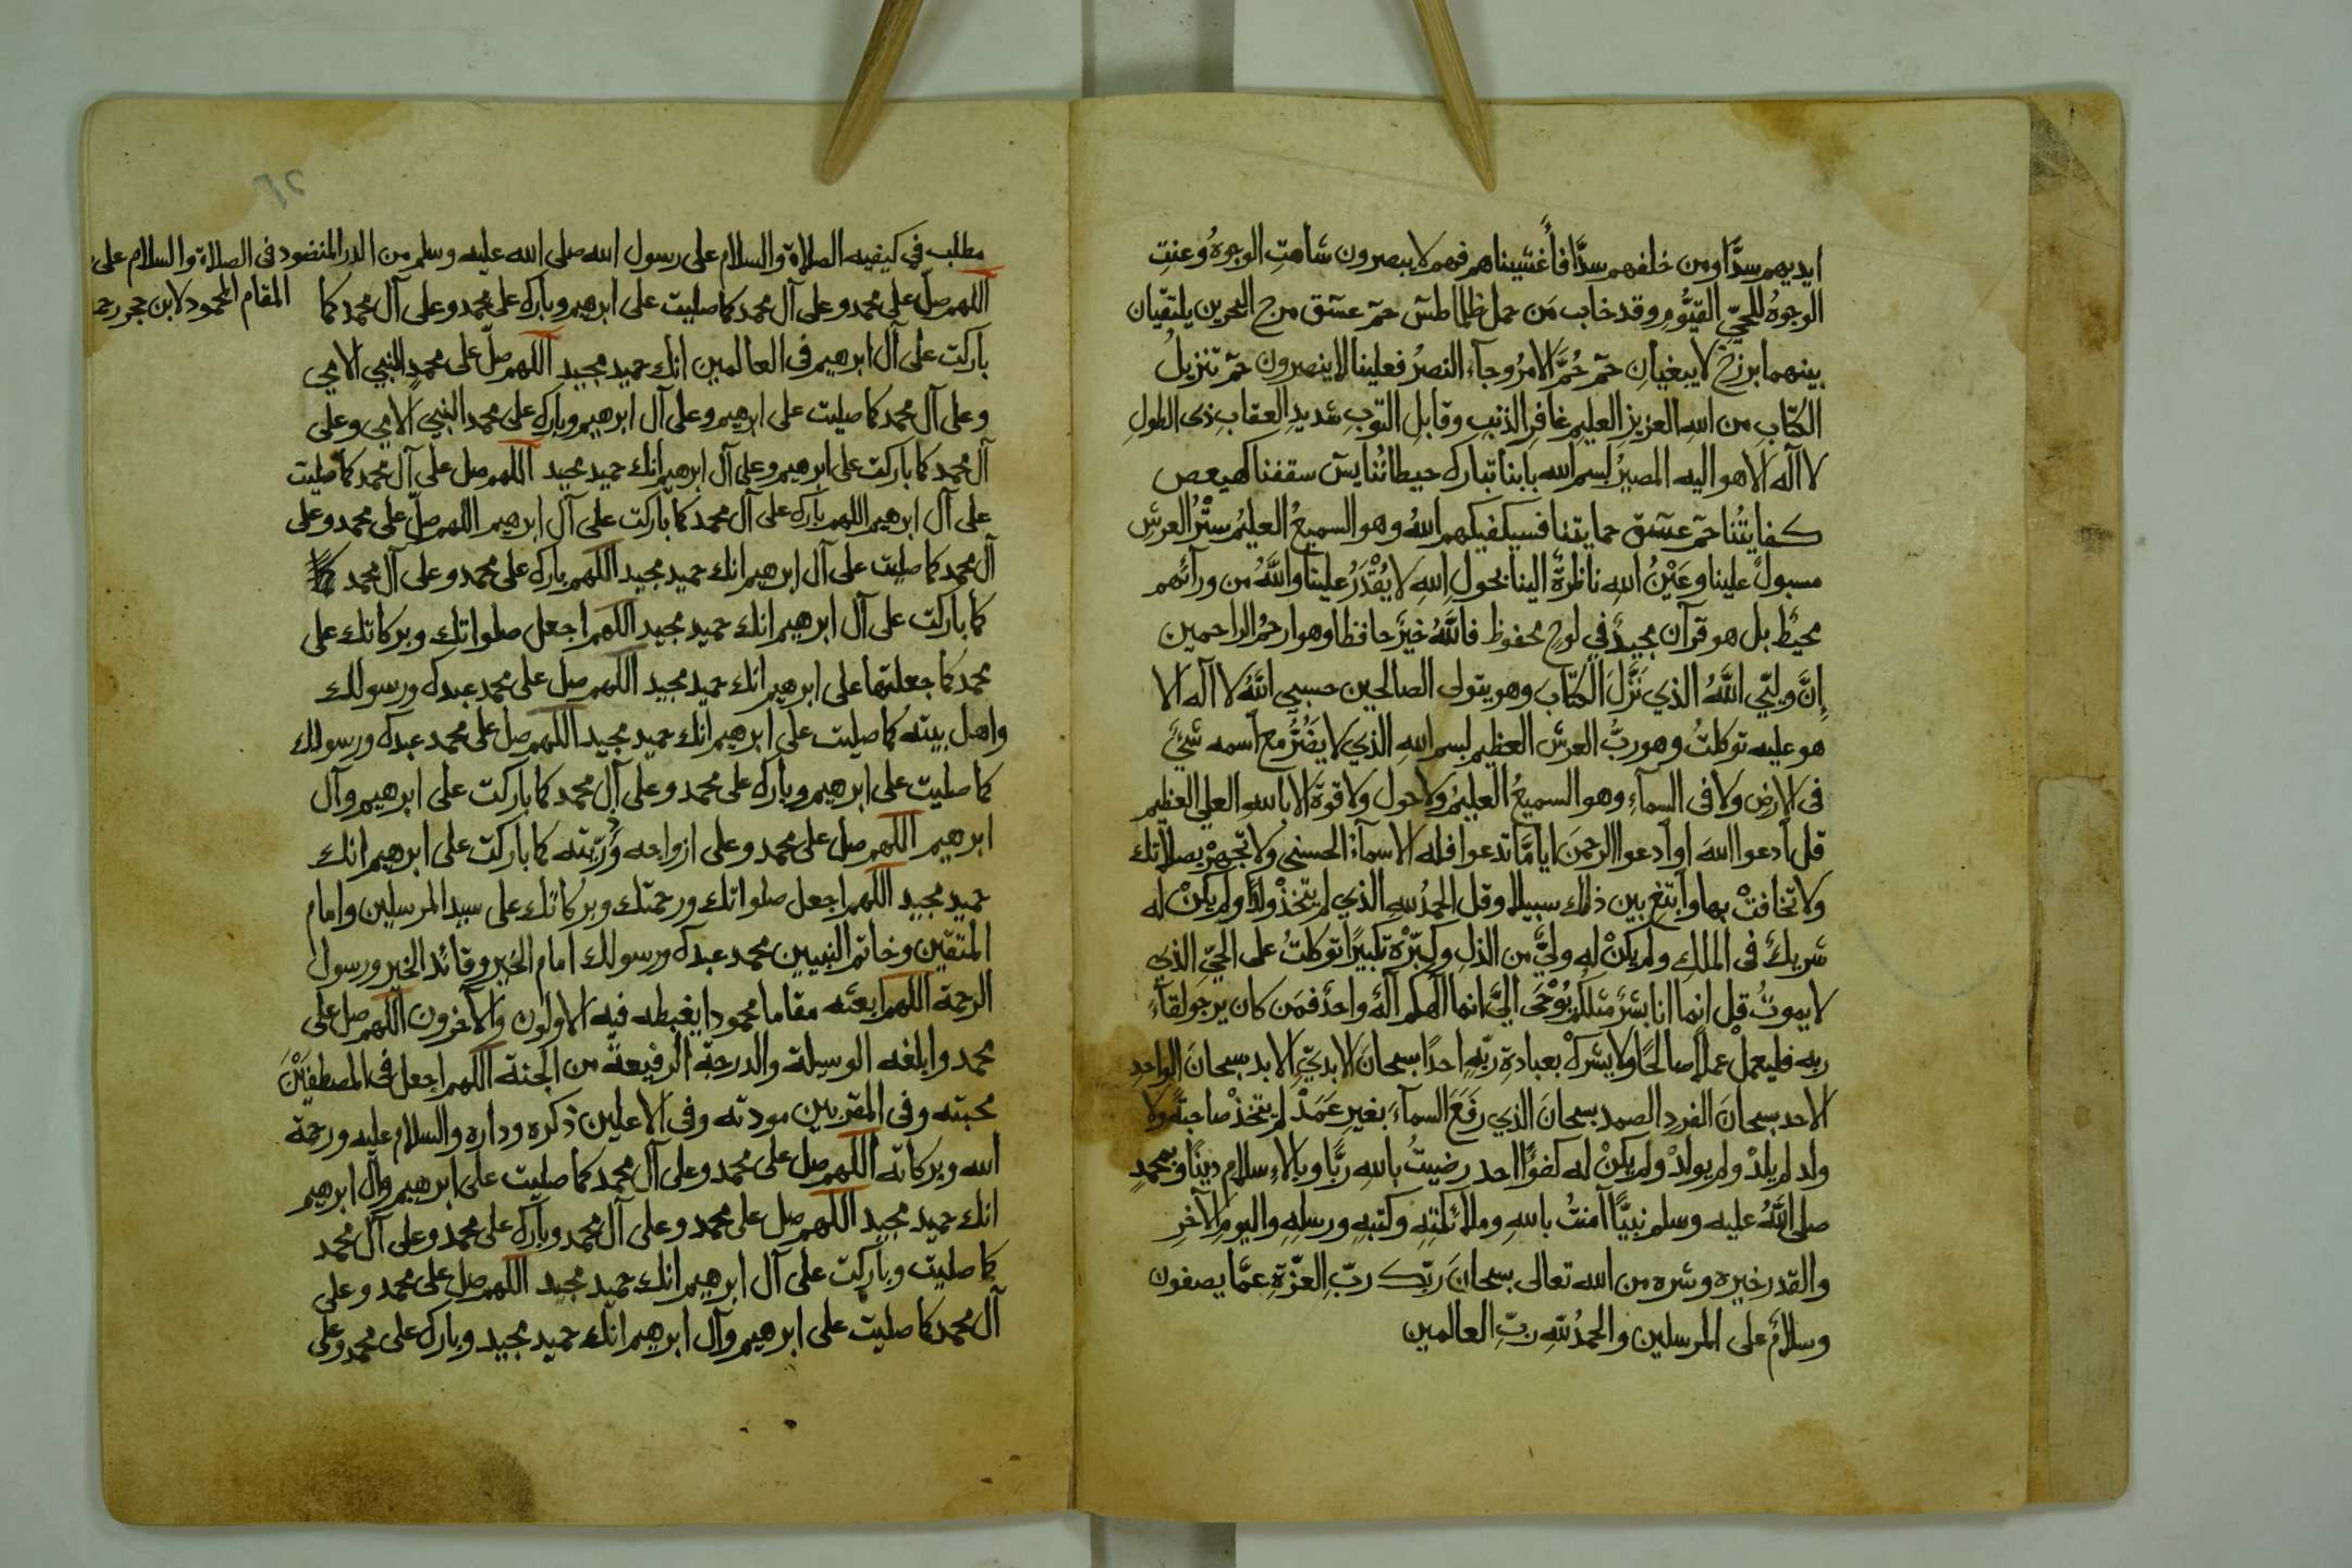 ايديهم سدًّا ومن خلفهم سدًّا فأغشيناهم فهم لا يبصرون شاهتِ الوجوهُ وعنتِ
الوجوهُ للحيِّ القيُّومِ وقد خاب مَن حمل ظلما طسٓ حمٓ عسٓقٓ مرج البحرين يلتقيان
بينهما برزخٌ لا يبغيانِ حمٓ حُمَّ الامرُ وجآء النصرُ فعلينا لا ينصرون حمٓ تنزيلُ
الكتابِ من اللهِ العزيزِ العليمِ غافرِ الذنبِ وقابلِ التوبِ شديدِ العقابِ ذي الطولِ
لا آله الا هو اليه المصيرُ بسم الله بابنا تبارك حيطانُنا يسٓ سقفنا كهيعص
كفايتُنا حمٓ عسٓقٓ حمايتنا فسيكفيكهم اللهُ وهو السميعُ العليمُ سترُ العرشِ
مسبولٌ علينا وعَيْنُ اللهِ ناظرةٌ الينا بحولِ اللهِ لا يُقْدَرُ علينا واللهُ من ورآئهم
محيطٌ بل هو قرآن مجيدٌ في لوحٍ محفوظ فاللهُ خيرٌ حافظا وهو ارحمُ الراحمين
إنَّ وليّي اللهُ الذي نَزَّلَ الكتابَ وهو يتولى الصالحين حسبي اللهُ لا آله الا
هو عليه توكلتُ وهو ربُّ العرش العظيم بسم اللهِ الذي لا يَضُرُّ مع اسمه شئٌ
في الارض ولا في السمآءِ وهو السميعُ العليمُ ولا حول ولا قوة الا باللهِ العلي العظيم
قل ادعوا اللهَ او ادعوا الرحمنَ ايا مَّا تدعوا فله الاسمآءُ الحسنى ولا تجهرْ بصلاتك
ولا تخافتْ بها وابتغِ بين ذلك سبيلا وقل الحمدُ للهِ الذي لم يتخذْ ولدًا ولم يكنْ له
شريكٌ في الملكِ ولم يكنْ له وليٌّ من الذلِ وكبِّرْه تكبيرًا توكلتُ على الحيِّ الذي
لا يموتُ قل انما انا بشرٌ مثلكم يُوْحَى اليَّ انما الٓهكم آلهٌ واحدٌ فمَن كان يرجو لقآءَ
ربه فليعملْ عملًا صالحًا ولا يشركْ بعبادةِ ربِّهِ احدًا سبحانَ الابديِّ الابد سبحانَ الواحدِ
الاحد سبحانَ الفردِ الصمد سبحانَ الذي رَفَعَ السمآءَ بغيرِ عَمَدْ لم يتخذْ صاحبةً ولا
ولد لم يلدْ ولم يولدْ ولم يكنْ له كفوًا احد رضيتُ باللهِ ربًّا وبالاِسلامِ دينًا وبمحمدٍ
صلى اللهُ عليه وسلم نبيًّا آمنتُ باللهِ وملائكتِهِ وكتبهِ ورسلِهِ واليومِ الآخرِ
والقدر خيره وشره من الله تعالى سبحانَ ربّك ربِّ العزّةِ عمَّا يصفون
وسلامٌ على المرسلين والحمدُ للهِ ربِّ العالمين
مطلب في كيفيه الصلاة والسلام على رسول الله صلى الله عليه وسلم من الدر المنضود في الصلاة والسلام على
المقام المحمود لابن حجر
اللهم صل على محمد وعلى آل محمد كما صليت على ابرهيم وبارك على محمد وعلى آل محمد كما
باركت على آل ابرهيم في العالمين انك حميد مجيد اللهم صلّ على محمد النبي الامي
وعلى آل محمد كما صليت على ابرهيم وعلى آل ابرهيم وبارك على محمد النبي الامي وعلى
آل محمد كما باركت على ابرهيم وعلى آل ابرهيم انك حميد مجيد اللهم صل على آل محمد كما صليت
على آل ابرهيم اللهم بارك على آل محمد كما باركت على آل ابرهيم اللهم صلّ على محمد وعلى
آل محمد كما صليت على آل ابرهيم انك حميد مجيد اللهم بارك على محمد وعلى آل محمد
كما باركت على آل ابرهيم انك حميد مجيد اللهم اجعل صلواتك وبركاتك على
محمد كما جعلتها على ابرهيم انك حميد مجيد اللهم صل على محمد عبدك ورسولك
واهل بيته كما صليت على ابرهيم انك حميد مجيد اللهم صل على محمد عبدك ورسولك
كما صليت على ابرهيم وبارك على محمد وعلى آل محمد كما باركت على ابرهيم وآل
ابرهيم اللهم صل على محمد وعلى ازواجه وذريته كما باركت على ابرهيم انك
حميد مجيد اللهم اجعل صلواتك ورحمتك وبركاتك على سيد المرسلين وامام
المتقين وخاتم النبيين محمد عبدك ورسولك امام الخير وقائد الخير ورسول
الرحمة اللهم ابعثه مقاما محمودا يغبطه فيه الاولون والآخرون اللهم صل على
محمد وابلغه الوسيلة والدرجة الرفيعة من الجنة اللهم اجعل في المصطفَيْنَ
محبته وفي المقربين مودته وفي الاعلين ذكره وداره والسلام عليه ورحمة
الله وبركاته اللهم صل على محمد وعلى آل محمد كما صليت على ابرهيم وآل ابرهيم
انك حميد مجيد اللهم صل على محمد وعلى آل محمد وبارك على محمد وعلى آل محمد
كما صليت وباركت على آل ابرهيم انك حميد مجيد اللهم صل على محمد وعلى
آل محمد كما صليت على ابرهيم وآل ابرهيم انك حميد مجيد وبارك على محمد وعلى